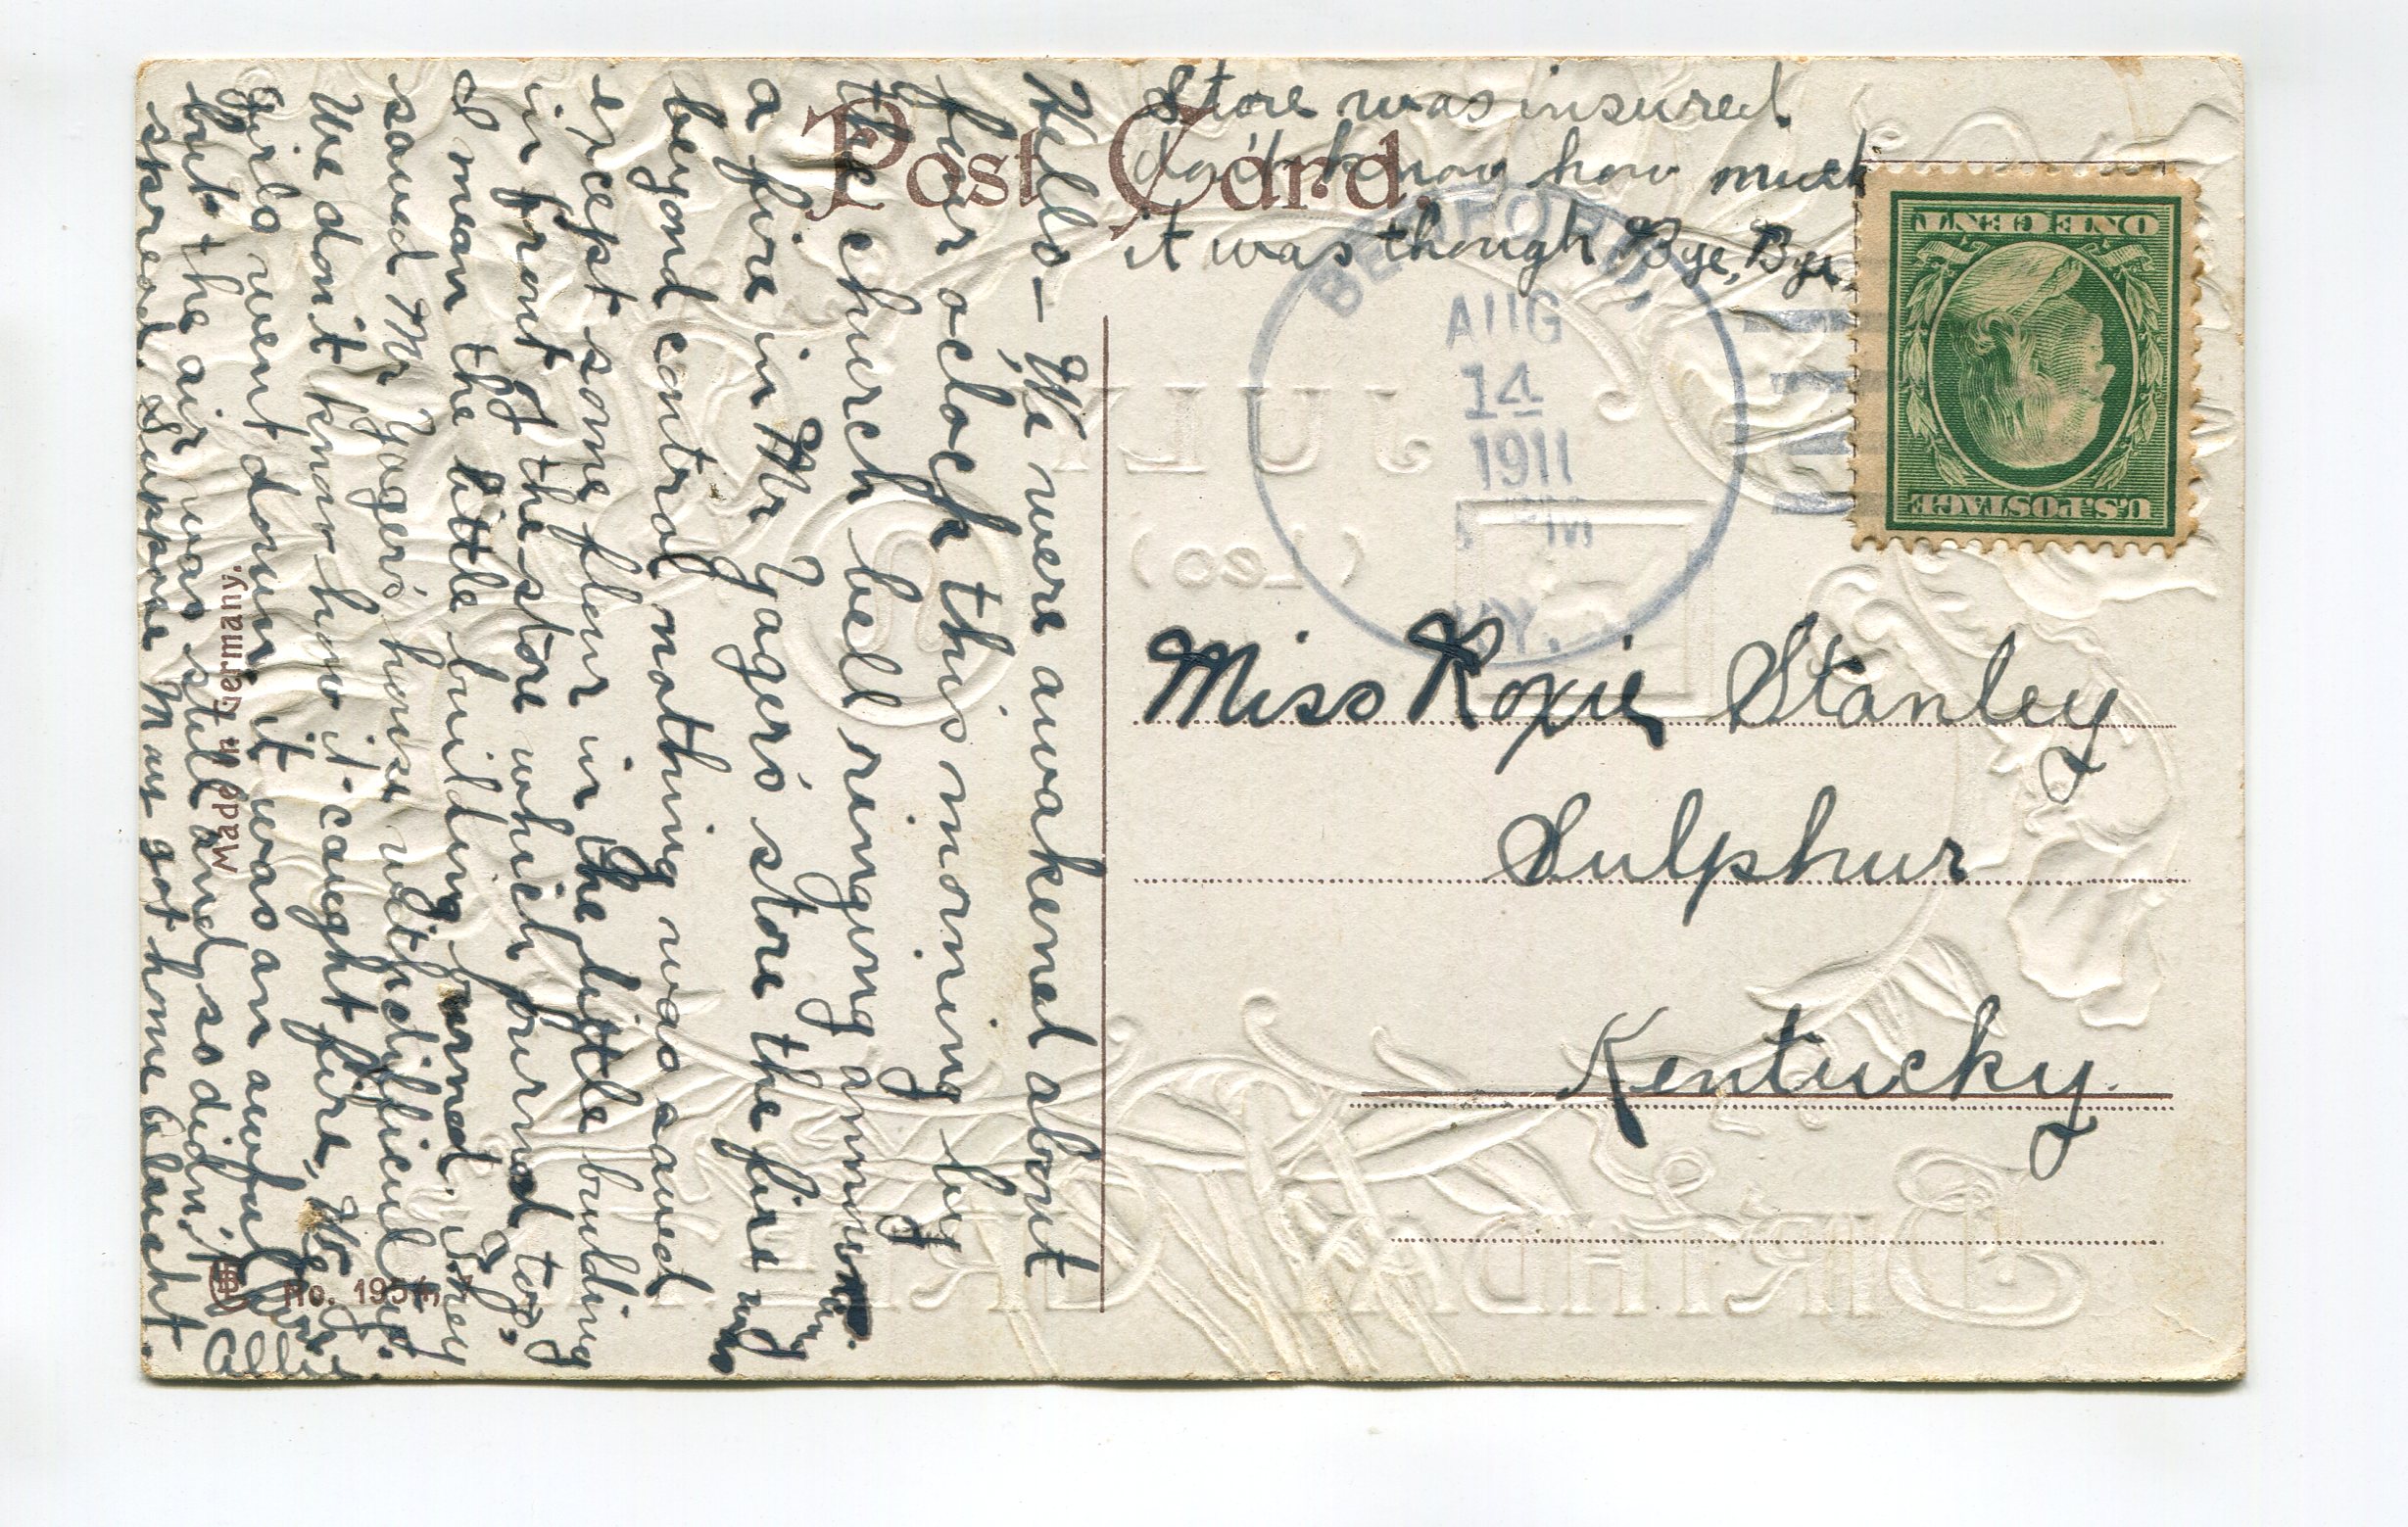 Post Card.
Store was insured.
don't know how much
it was though Bye, Bye.
BEDFORD,
AUG
14
1911
PM
KY.
ONE CENT
U.S. POSTAGE
Miss Roxie Stanley
Sulphur
Kentucky.
Hello - We were awakened about
four oclock this morning by
the church bell ringing announcing
a fire in Mr Yager's store the fire was
beyond control nothing was saved
except some flour in the little building
in front of the store which burned too,
I mean the little building burned. They
saved Mr Yager's house with difficulty.
We don't know how it caught fire, We
girls went down it was an awful
but the air was still and so didn't
spread. Suppose Man got home alright.
Allie
Made in Germany.
No. 195
JULY
(Leo)
BIRTHDAY GREETING